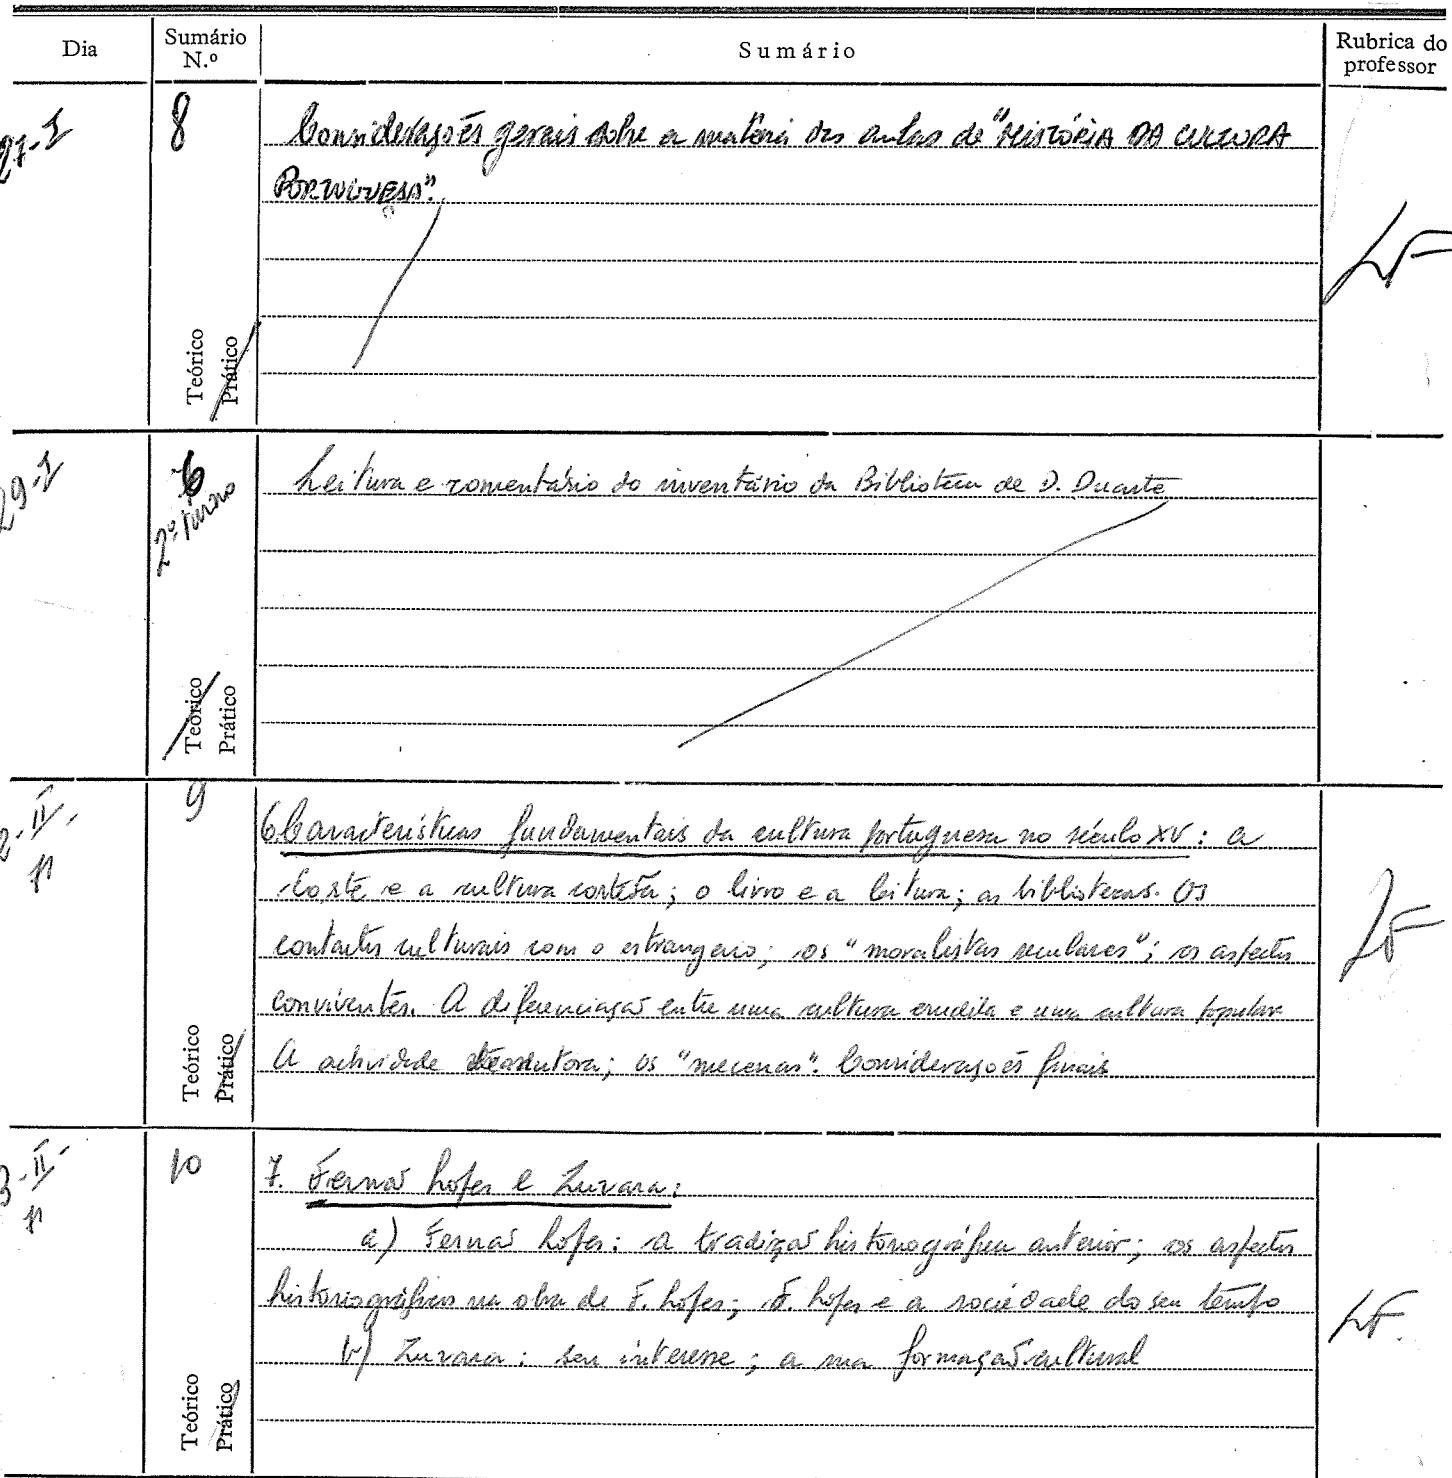 Dia
Sumário N.º
Sumário
Rubrica do professor
27-I
8
Considerações gerais sobre a matéria das aulas de "HISTÓRIA DA CULTURA
PORTUGUESA".
Teórico
Prático
29-I
6
2º turno
Leitura e comentário do inventário da Biblioteca de D. Duarte
Teórico
Prático
2-II-
9
6. Características fundamentais da cultura portuguesa no século XV: a
corte e a cultura cortesã; o livro e a leitura; as bibliotecas. Os
contactos culturais com o estrangeiro; os "moralistas seculares"; os aspectos
conviventes. A diferenciação entre uma cultura erudita e uma cultura popular
A actividade tradutora; os "mecenas". Considerações finais
Teórico
Prático
3-II-
10
7. Fernão Lopes e Zurara:
a) Fernão Lopes: a tradição historiográfica anterior; os aspectos
historiográficos na obra de F. Lopes; F. Lopes e a sociedade do seu tempo
b) Zurara: seu interesse; a sua formação cultural
Teórico
Prático